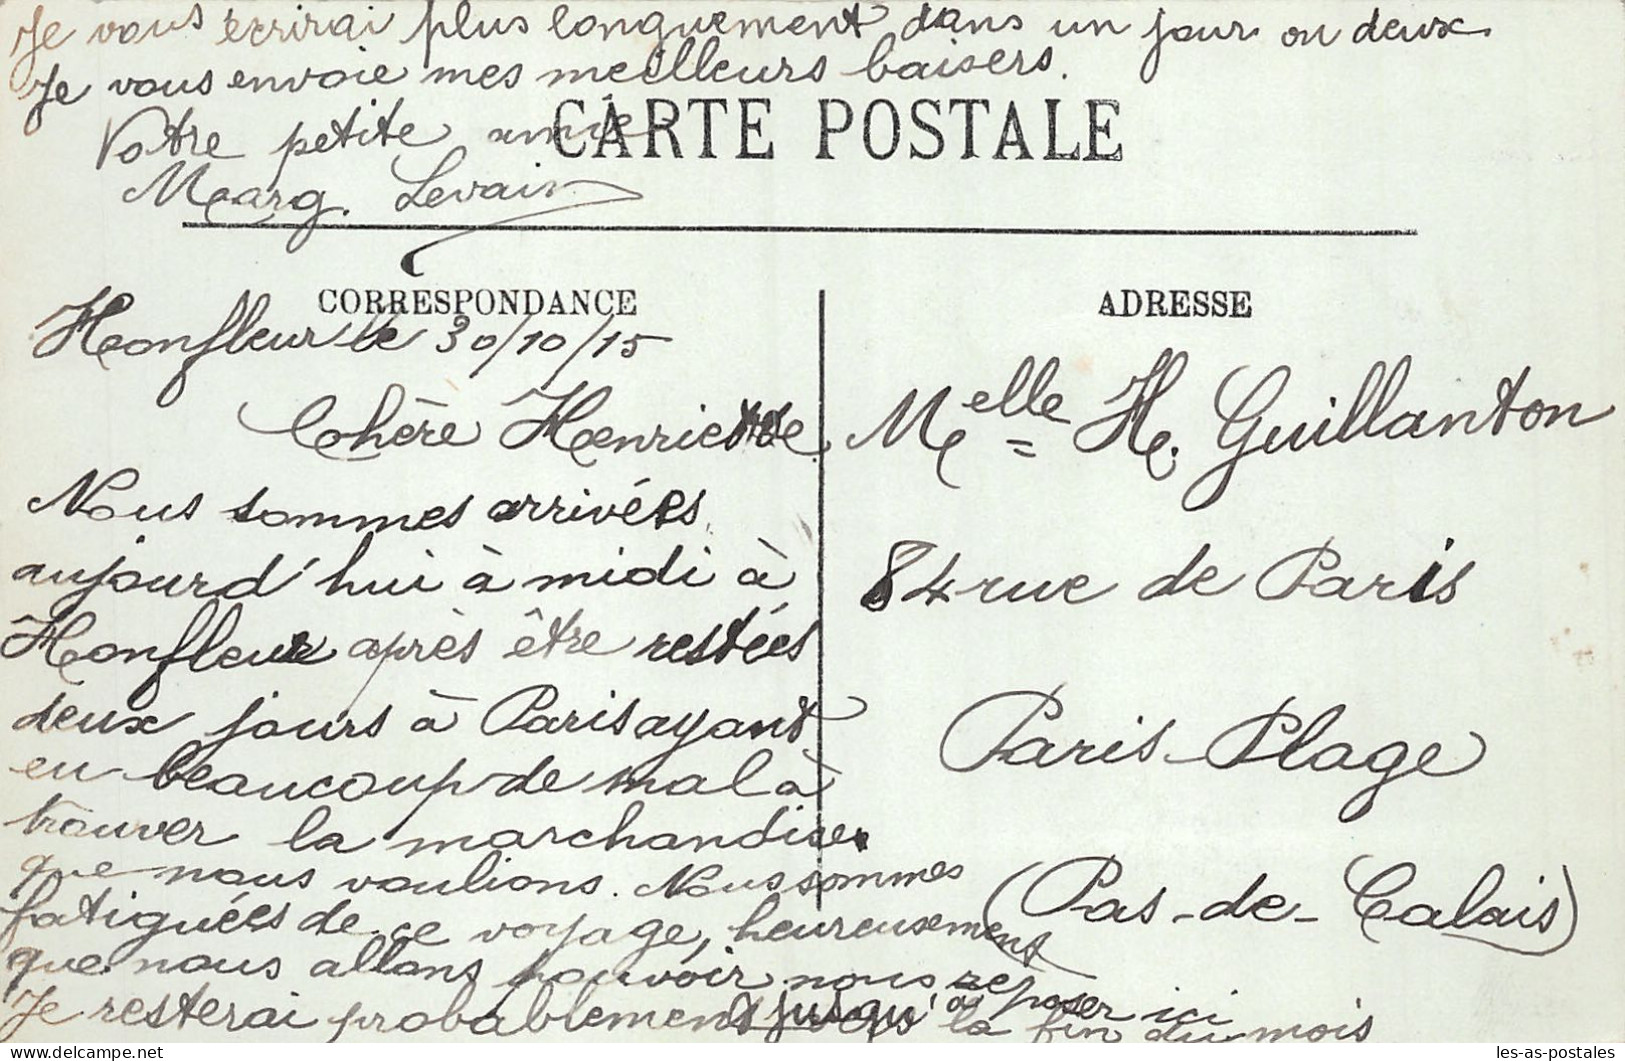 Je vous écrirai plus longuement dans un jour ou deux.
Je vous envoie mes meilleurs baisers.
Votre petite amie
CARTE POSTALE
Marg. Levain
CORRESPONDANCE
Honfleur le 30/10/15
Chère Henriette
Nous sommes arrivées
aujourd'hui à midi à
Honfleur après être restées
deux jours à Paris ayant
eu beaucoup de mal à
trouver la marchandise
que nous voulions. Nous sommes
fatiguées de ce voyage, heureusement
que nous allons pouvoir nous reposer ici
Je resterai probablement jusqu'à la fin du mois
ADRESSE
Melle H. Guillanton
84 rue de Paris
Paris-Plage
(Pas-de-Calais)
les-as-postales.com